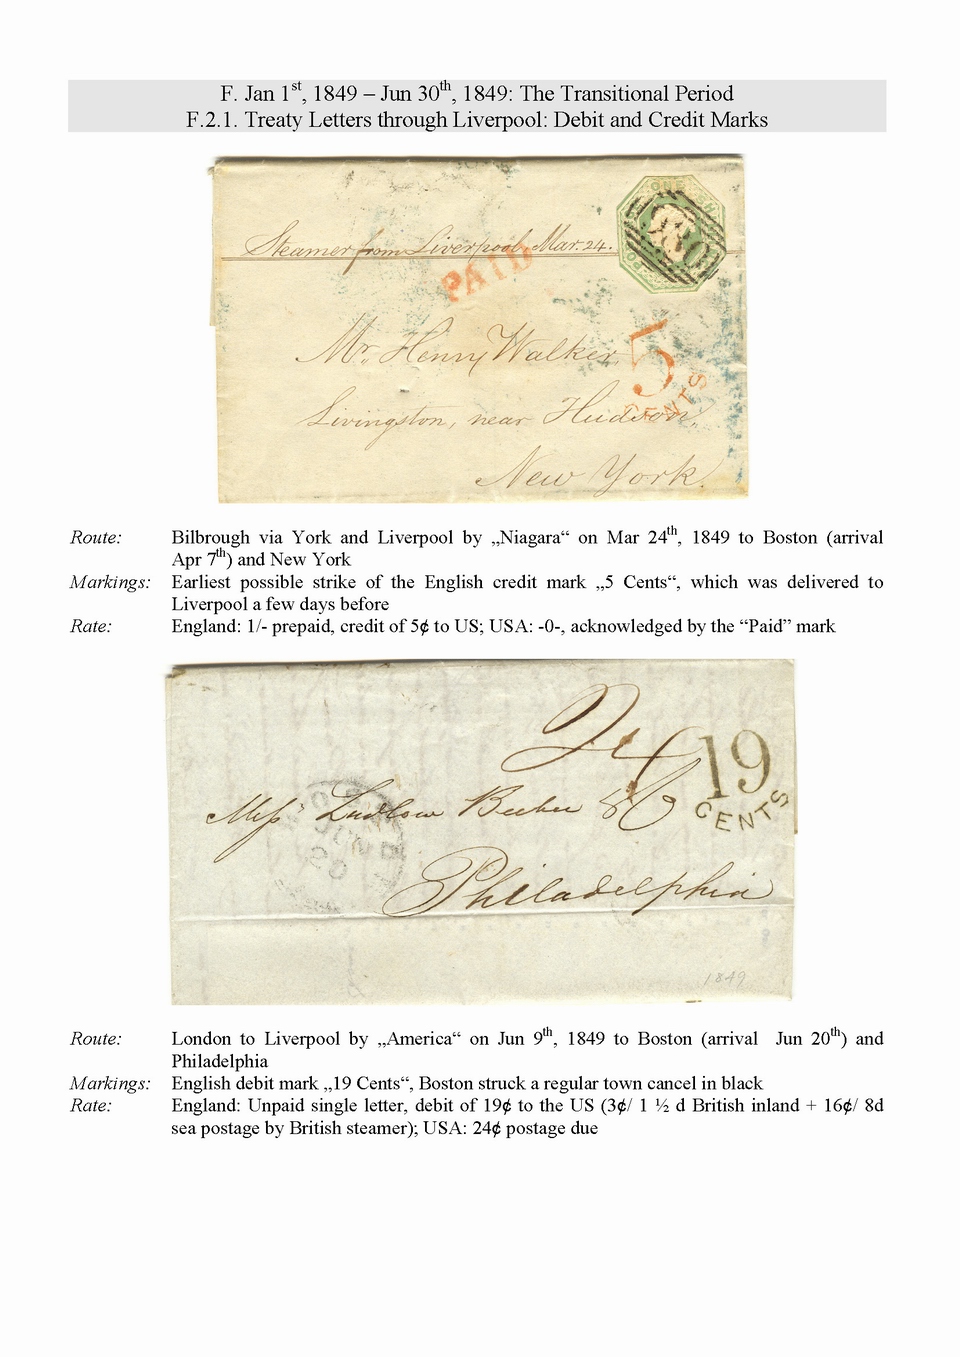 F. Jan 1st, 1849 – Jun 30th, 1849: The Transitional Period
F.2.1. Treaty Letters through Liverpool: Debit and Credit Marks
Steamer from Liverpool, Mar. 24.
PAID
Mr. Henry Walker
5
CENTS
Livingston, near Hudson,
New York.
Route: Bilbrough via York and Liverpool by „Niagara“ on Mar 24th, 1849 to Boston (arrival
Apr 7th) and New York
Markings: Earliest possible strike of the English credit mark „5 Cents“, which was delivered to
Liverpool a few days before
Rate: England: 1/- prepaid, credit of 5¢ to US; USA: -0-, acknowledged by the “Paid” mark
19
CENTS
Messrs Ludlow Beebee & Co
Philadelphia
1849
Route: London to Liverpool by „America“ on Jun 9th, 1849 to Boston (arrival Jun 20th) and
Philadelphia
Markings: English debit mark „19 Cents“, Boston struck a regular town cancel in black
Rate: England: Unpaid single letter, debit of 19¢ to the US (3¢/ 1 ½ d British inland + 16¢/ 8d
sea postage by British steamer); USA: 24¢ postage due